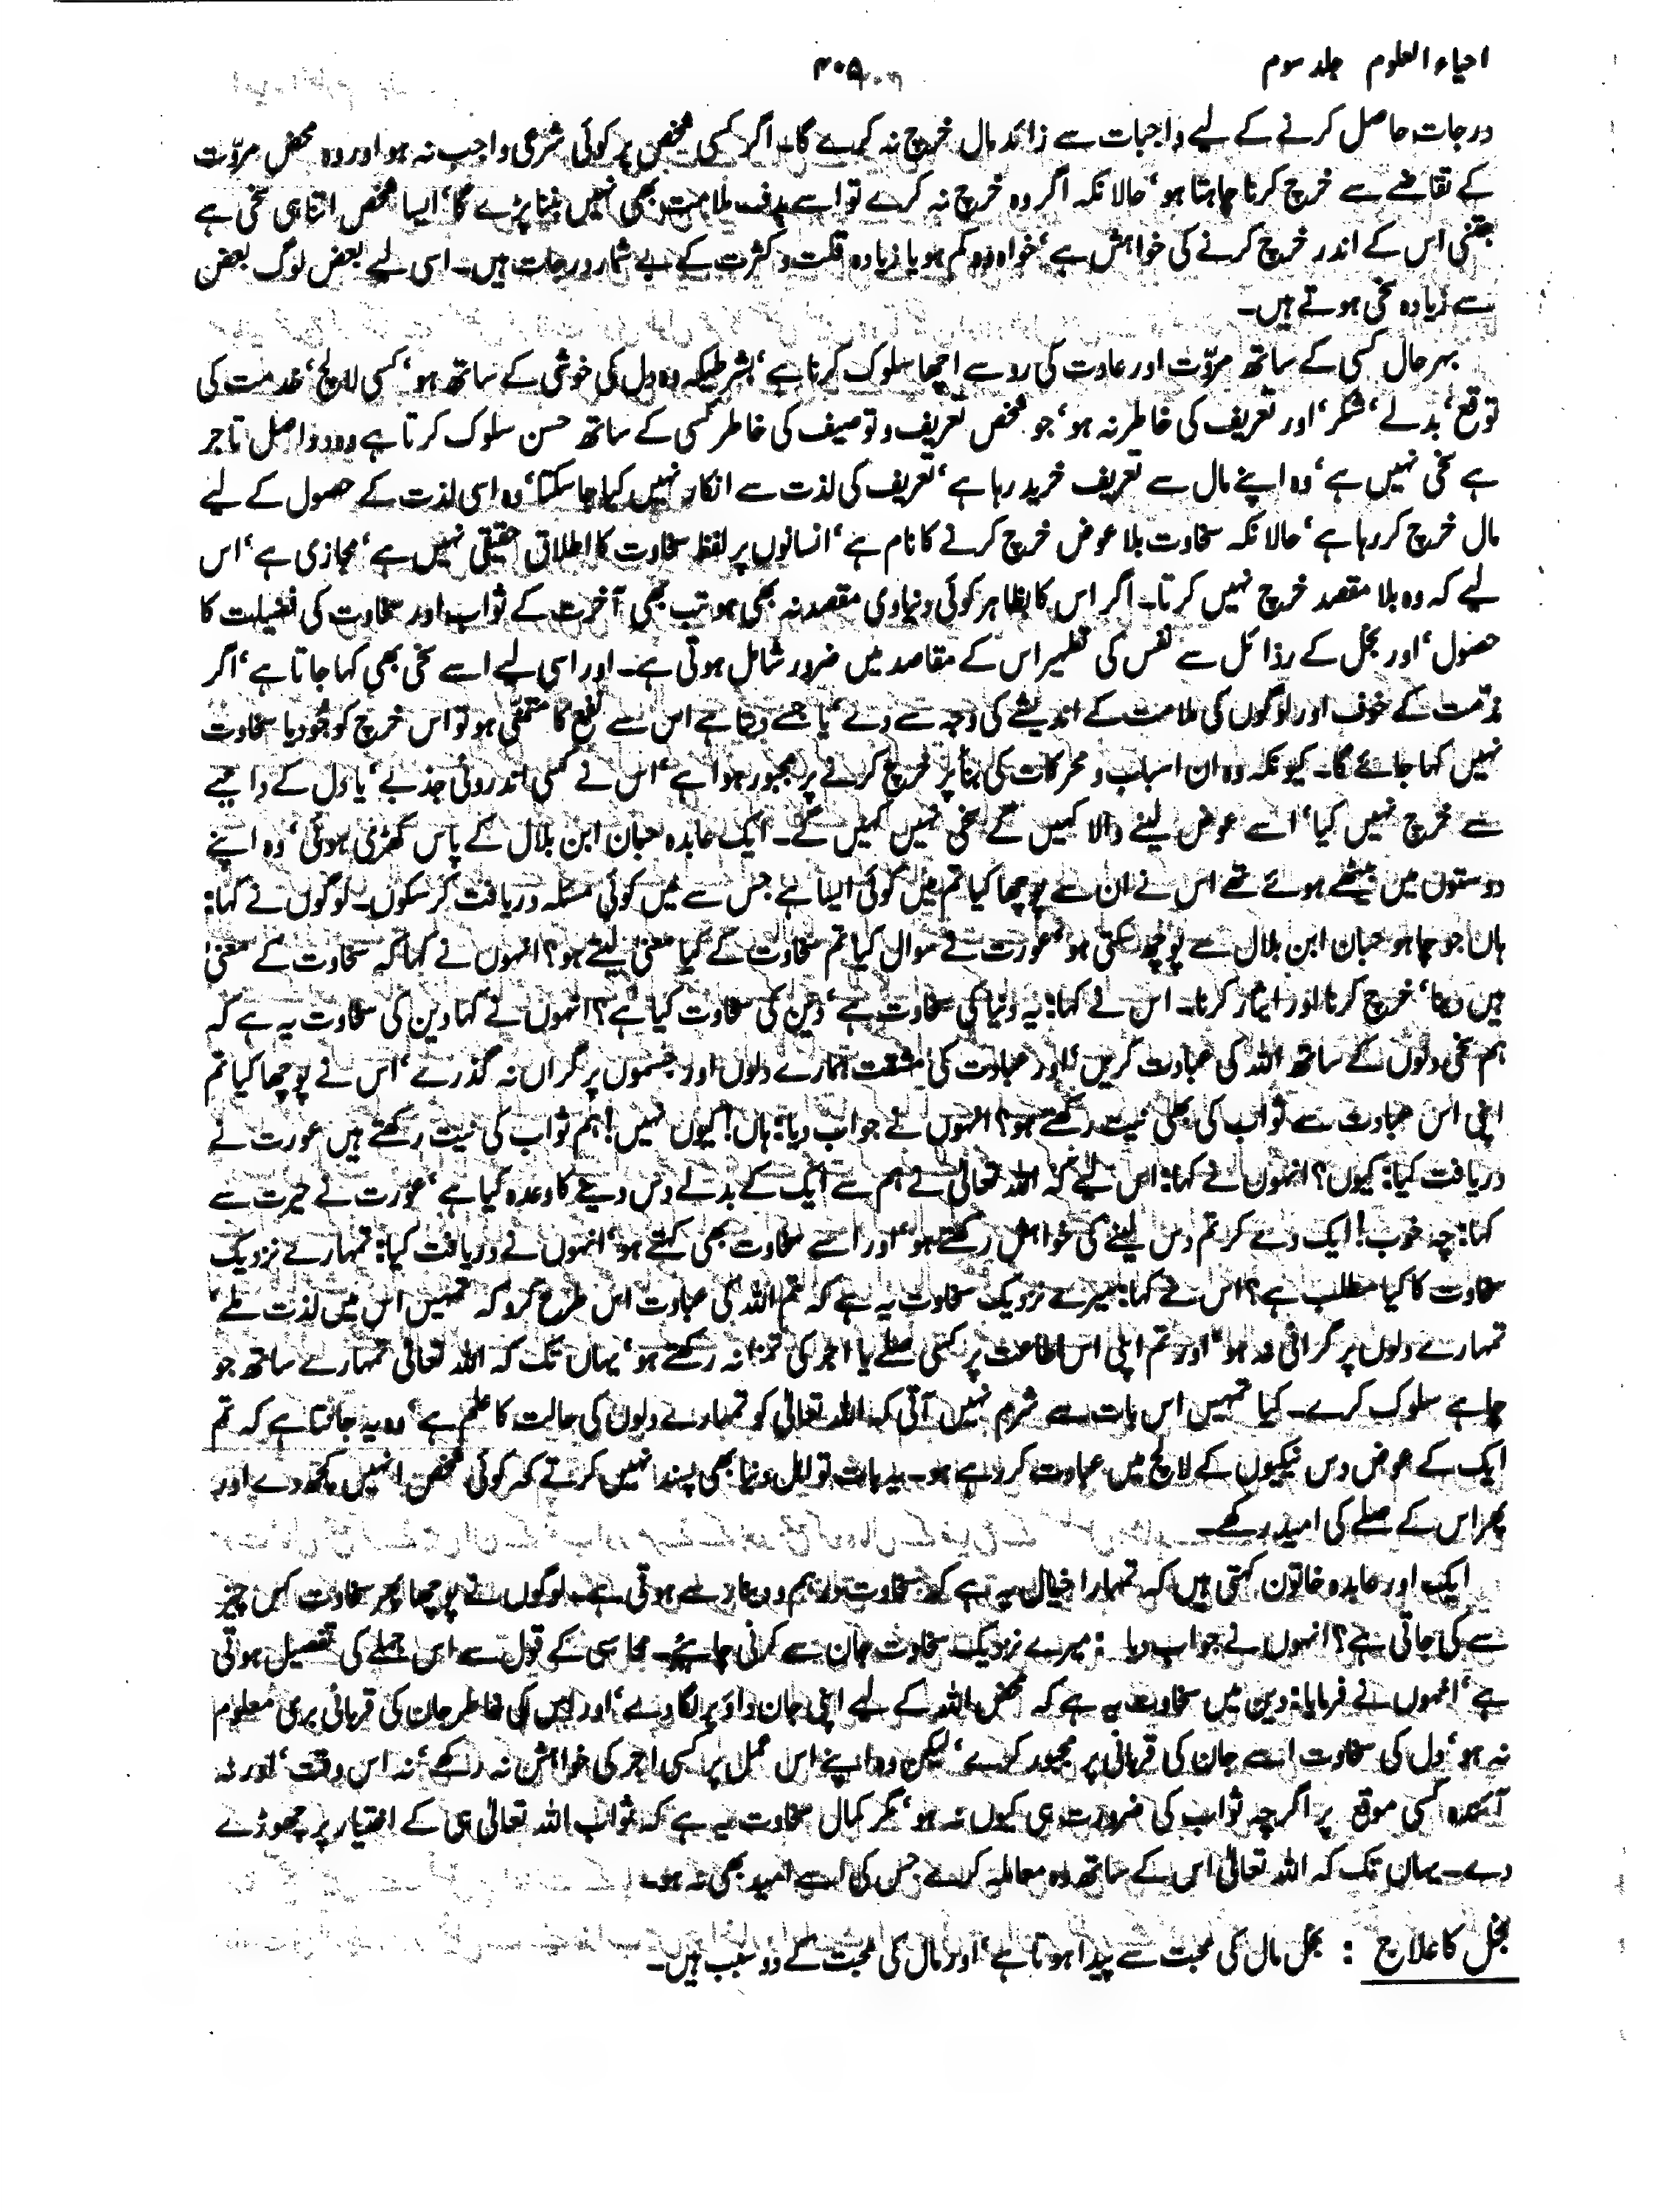 احیاء العلوم جلد سوم
۴۰۵
درجات حاصل کرنے کے لیے واجبات سے زائد مال خرچ نہ کرے گا۔ اگر کسی شخص پر کوئی شرعی واجب نہ ہو اور وہ محض مروّت
کے تقاضے سے خرچ کرنا چاہتا ہو‘ حالانکہ اگر وہ خرچ نہ کرے تو اسے ہدف ملامت بھی نہیں بننا پڑے گا‘ ایسا شخص اتنا ہی سخی ہے
جتنی اس کے اندر خرچ کرنے کی خواہش ہے‘ خواہ وہ کم ہو یا زیادہ قلت و کثرت کے بے شمار درجات ہیں۔ اسی لیے بعض لوگ بعض
سے زیادہ سخی ہوتے ہیں۔
بہرحال کسی کے ساتھ مروّت اور عادت کی رو سے اچھا سلوک کرنا ہے‘ بشرطیکہ وہ دل کی خوشی کے ساتھ ہو‘ کسی لالچ‘ خدمت کی
توقع‘ بدلے‘ شکر‘ اور تعریف کی خاطر نہ ہو‘ جو شخص تعریف و توصیف کی خاطر کسی کے ساتھ حسن سلوک کرتا ہے وہ دراصل تاجر
ہے سخی نہیں ہے‘ وہ اپنے مال سے تعریف خرید رہا ہے‘ تعریف کی لذت سے انکار نہیں کیا جا سکتا‘ وہ اسی لذت کے حصول کے لیے
مال خرچ کر رہا ہے‘ حالانکہ سخاوت بلا عوض خرچ کرنے کا نام ہے‘ انسانوں پر لفظ سخاوت کا اطلاق حقیقی نہیں ہے‘ مجازی ہے‘ اس
لیے کہ وہ بلا مقصد خرچ نہیں کرتا۔ اگر اس کا بظاہر کوئی دنیاوی مقصد نہ بھی ہو تب بھی آخرت کے ثواب اور سخاوت کی فضیلت کا
حصول‘ اور بخل کے رذائل سے نفس کی تطہیر اس کے مقاصد میں ضرور شامل ہوتی ہے۔ اور اسی لیے اسے سخی بھی کہا جاتا ہے‘ اگر
مذمّت کے خوف اور لوگوں کی ملامت کے اندیشے کی وجہ سے دے‘ یا جسے دیتا ہے اس سے نفع کا متمنّی ہو تو اس خرچ کو جُود یا سخاوت
نہیں کہا جائے گا۔ کیونکہ وہ ان اسباب و محرکات کی بنا پر خرچ کرنے پر مجبور ہوا ہے‘ اس نے کسی اندرونی جذبے‘ یا دل کے داعیے
سے خرچ نہیں کیا‘ اسے عوض لینے والا کہیں گے سخی نہیں کہیں گے۔ ایک عابدہ حبان ابن ہلال کے پاس کھڑی ہوئی‘ وہ اپنے
دوستوں میں بیٹھے ہوئے تھے اس نے ان سے پوچھا کیا تم میں کوئی ایسا ہے جس سے میں کوئی مسئلہ دریافت کر سکوں۔ لوگوں نے کہا:
ہاں جو چاہو حبان ابن ہلال سے پوچھ سکتی ہو‘ عورت نے سوال کیا تم سخاوت کے کیا معنیٰ لیتے ہو؟ انہوں نے کہا کہ سخاوت کے معنیٰ
ہیں دینا‘ خرچ کرنا اور ایثار کرنا۔ اس نے کہا: یہ دنیا کی سخاوت ہے‘ دین کی سخاوت کیا ہے؟ انہوں نے کہا دین کی سخاوت یہ ہے کہ
ہم سخی دلوں کے ساتھ اللہ کی عبادت کریں‘ اور عبادت کی مشقت ہمارے دلوں اور جسموں پر گراں نہ گذرے‘ اس نے پوچھا کیا تم
اپنی اس عبادت سے ثواب کی بھی نیت رکھتے ہو؟ انہوں نے جواب دیا: ہاں! کیوں نہیں! ہم ثواب کی نیت رکھتے ہیں عورت نے
دریافت کیا: کیوں؟ انہوں نے کہا: اس لیے کہ اللہ تعالیٰ نے ہم سے ایک کے بدلے دس دینے کا وعدہ کیا ہے‘ عورت نے حیرت سے
کہا: چہ خوب! ایک دے کر تم دس لینے کی خواہش رکھتے ہو‘ اور اسے سخاوت بھی کہتے ہو‘ انہوں نے دریافت کیا: تمہارے نزدیک
سخاوت کا کیا مطلب ہے؟ اس نے کہا: میرے نزدیک سخاوت یہ ہے کہ تم اللہ کی عبادت اس طرح کرو کہ تمہیں اس میں لذت ملے‘
تمہارے دلوں پر گرانی نہ ہو‘ اور تم اپنی اس اطاعت پر کسی صلے یا اجر کی تمنا نہ رکھتے ہو‘ یہاں تک کہ اللہ تعالیٰ تمہارے ساتھ جو
چاہے سلوک کرے۔ کیا تمہیں اس بات سے شرم نہیں آتی کہ اللہ تعالیٰ کو تمہارے دلوں کی حالت کا علم ہے‘ وہ یہ جانتا ہے کہ تم
ایک کے عوض دس نیکیوں کے لالچ میں عبادت کر رہے ہو۔ یہ بات تو اہل دنیا بھی پسند نہیں کرتے کہ کوئی شخص انہیں کچھ دے اور
پھر اس کے صلے کی امید رکھے۔
ایک اور عابدہ خاتون کہتی ہیں کہ تمہارا خیال یہ ہے کہ سخاوت درہم و دینار سے ہوتی ہے۔ لوگوں نے پوچھا پھر سخاوت کس چیز
سے کی جاتی ہے؟ انہوں نے جواب دیا : میرے نزدیک سخاوت جان سے کرنی چاہئے۔ محاسبی کے قول سے اس جملے کی تفصیل ہوتی
ہے‘ انہوں نے فرمایا: دین میں سخاوت یہ ہے کہ محض اللہ کے لیے اپنی جان داؤ پر لگا دے‘ اور اس کی خاطر جان کی قربانی بری معلوم
نہ ہو‘ دل کی سخاوت اسے جان کی قربانی پر مجبور کرے‘ لیکن وہ اپنے اس عمل پر کسی اجر کی خواہش نہ رکھے‘ نہ اس وقت‘ اور نہ
آئندہ کسی موقع پر اگرچہ ثواب کی ضرورت ہی کیوں نہ ہو‘ مگر کمال سخاوت یہ ہے کہ ثواب اللہ تعالیٰ ہی کے اختیار پر چھوڑ دے
دے۔ یہاں تک کہ اللہ تعالیٰ اس کے ساتھ وہ معاملہ کرے جس کی اسے امید بھی نہ ہو۔
بخل کا علاج : بخل مال کی محبت سے پیدا ہوتا ہے‘ اور مال کی محبت کے دو سبب ہیں۔